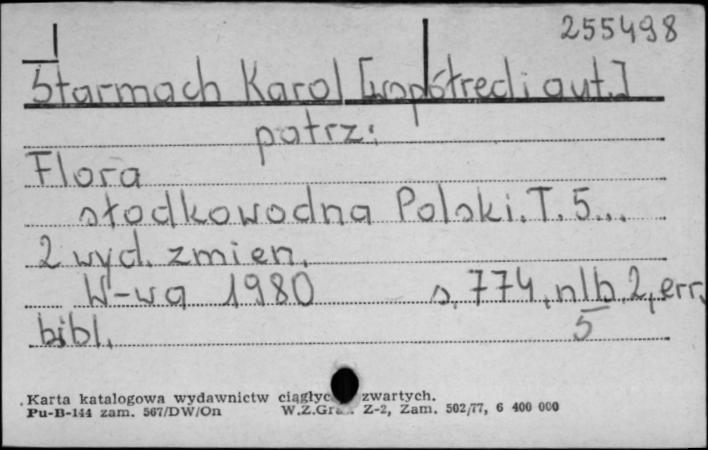 255498
Starmach Karol [współred. i aut.]
patrz:
Flora
słodkowodna Polski. T. 5...
2 wyd. zmien.
W-wa 1980 s. 774, nlb. 2, err.
bibl. 5
Karta katalogowa wydawnictw zwartych.
Pu-B-144 zam. 567/DW/On W.Z.Graf. Z-2, Zam. 502/77, 6 400 000